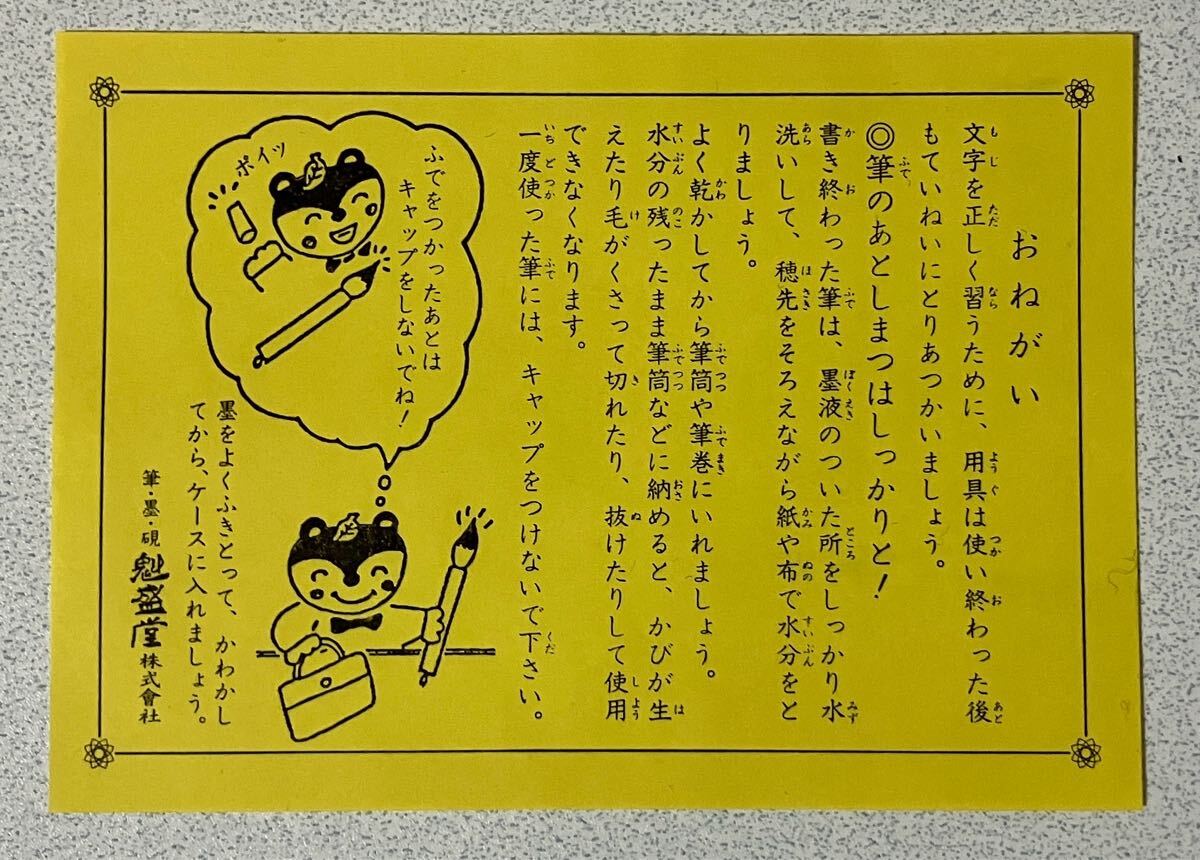 おねがい
文字を正しく習うために、用具は使い終わった後
もていねいにとりあつかいましょう。
◎筆のあとしまつはしっかりと!
書き終わった筆は、墨液のついた所をしっかり水
洗いして、穂先をそろえながら紙や布で水分をと
りましょう。
よく乾かしてから筆筒や筆巻にいれましょう。
水分の残ったまま筆筒などに納めると、かびが生
えたり毛がくさって切れたり、抜けたりして使用
できなくなります。
一度使った筆には、キャップをつけないで下さい。
ふでをつかったあとは
キャップをしないでね!
ポイッ
墨をよくふきとって、かわかし
てから、ケースに入れましょう。
筆・墨・硯 魁盛堂 株式會社